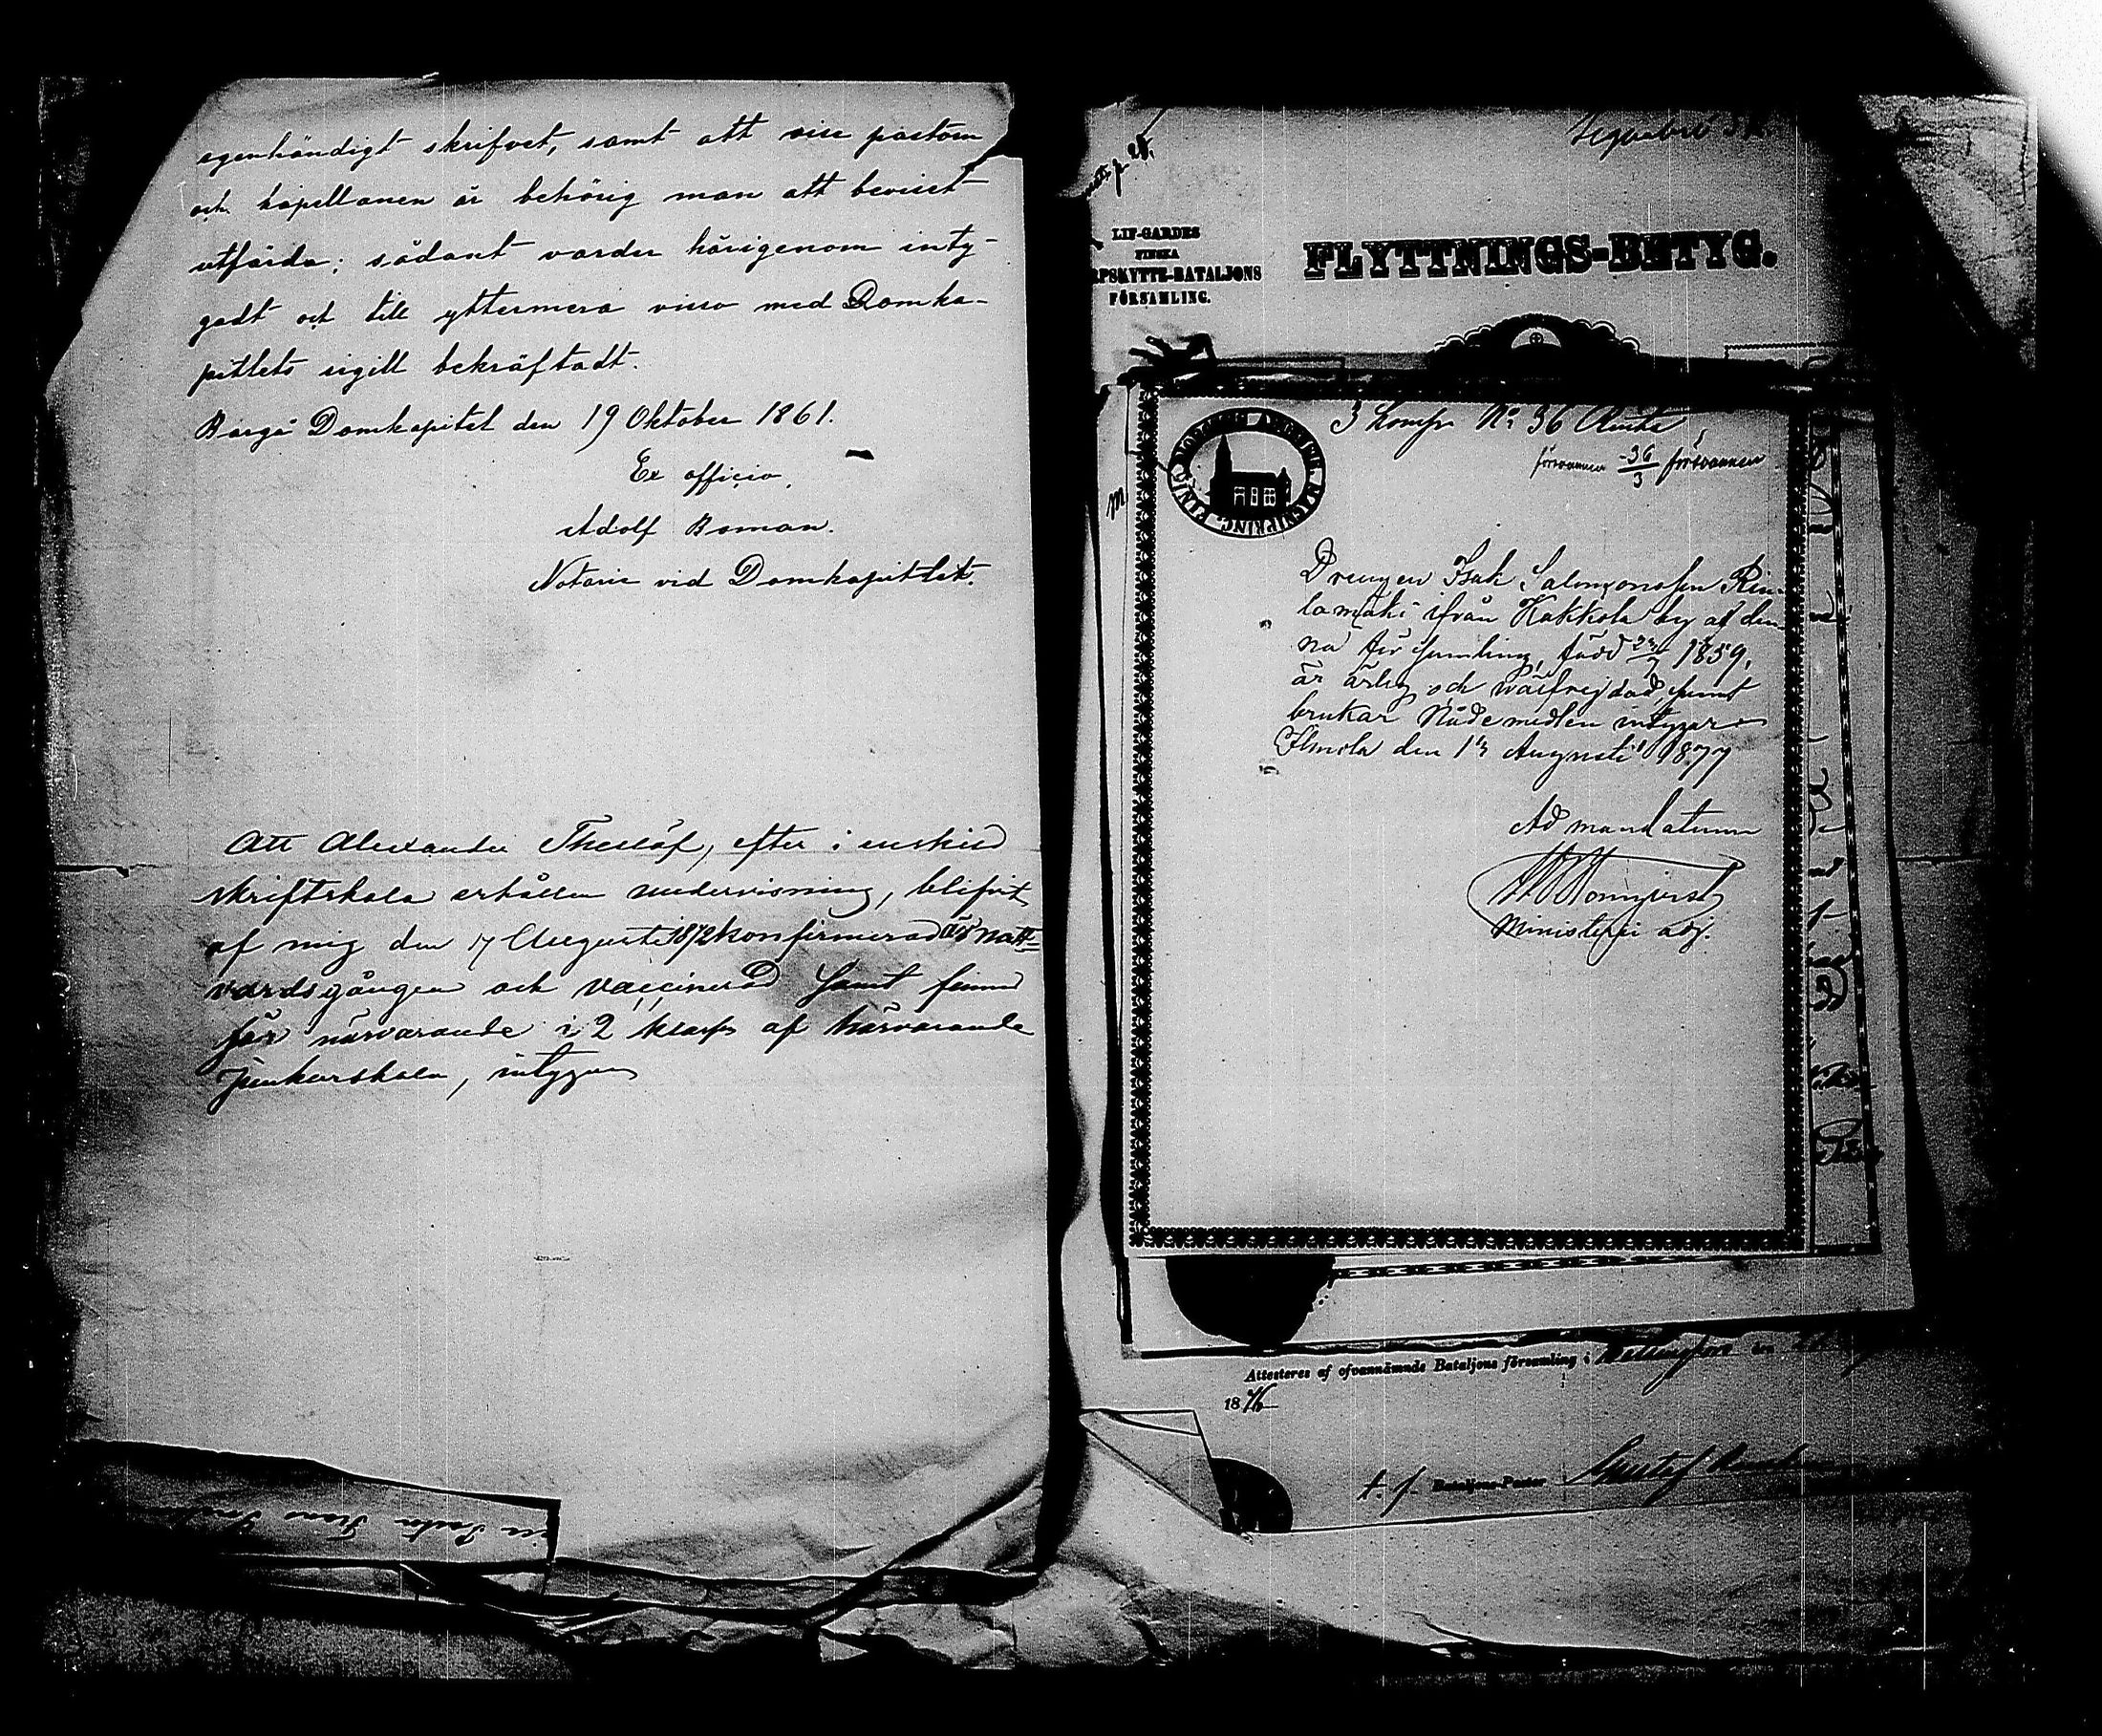 egenhändigt skrifvet, samt att vice pastorn
och kapellanen är behörig man att beviset
utfärda; sådant varder härigenom inty-
gadt och till yttermera visso med Domka-
pitlets sigill bekräftadt.
Borgå Domkapitel den 19 Oktober 1861.
Ex officio
Adolf Boman.
Notarie vid Domkapitlet.
Att Alexander Theslöf, efter i enskild
skriftskola erhållen undervisning, blifvit
af mig den 17 Augusti 1872 konfirmerad till Natt=
vardsgången och vaccinerad samt finnes
för närvarande i 2 klass af härvarande
Junkerskola, intygar
LIF-GARDES
FINSKA
RPSKYTTE-BATALJONS
FÖRSAMLING.
FLYTTNINGS-BETYG.
3 Komp. No 36
36/3
Drengen Isak Salomonsson Rin-
lamäki ifrån Kokkola by af den-
na församling, född 1859,
är ärlig och välfrejdad, samt
brukar Nådemedlen intygar
Ilmola den 13 Augusti 1877
Ad mandatum
Ministerii adj.
Attesteres af ofvannämnde Bataljons församling i Helsingfors den
1876
t. f. Bataljons-Pastor Gustaf